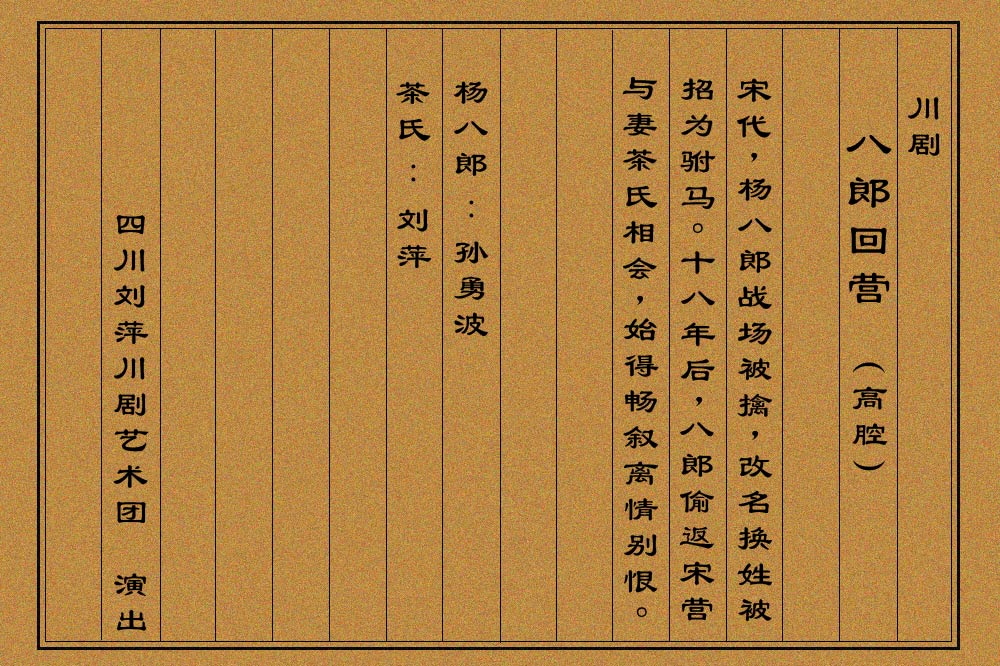 川剧
八郎回营 （高腔）
宋代，杨八郎战场被擒，改名换姓被
招为驸马。十八年后，八郎偷返宋营
与妻茶氏相会，始得畅叙离情别恨。
杨八郎：孙勇波
茶氏：刘萍
四川刘萍川剧艺术团 演出